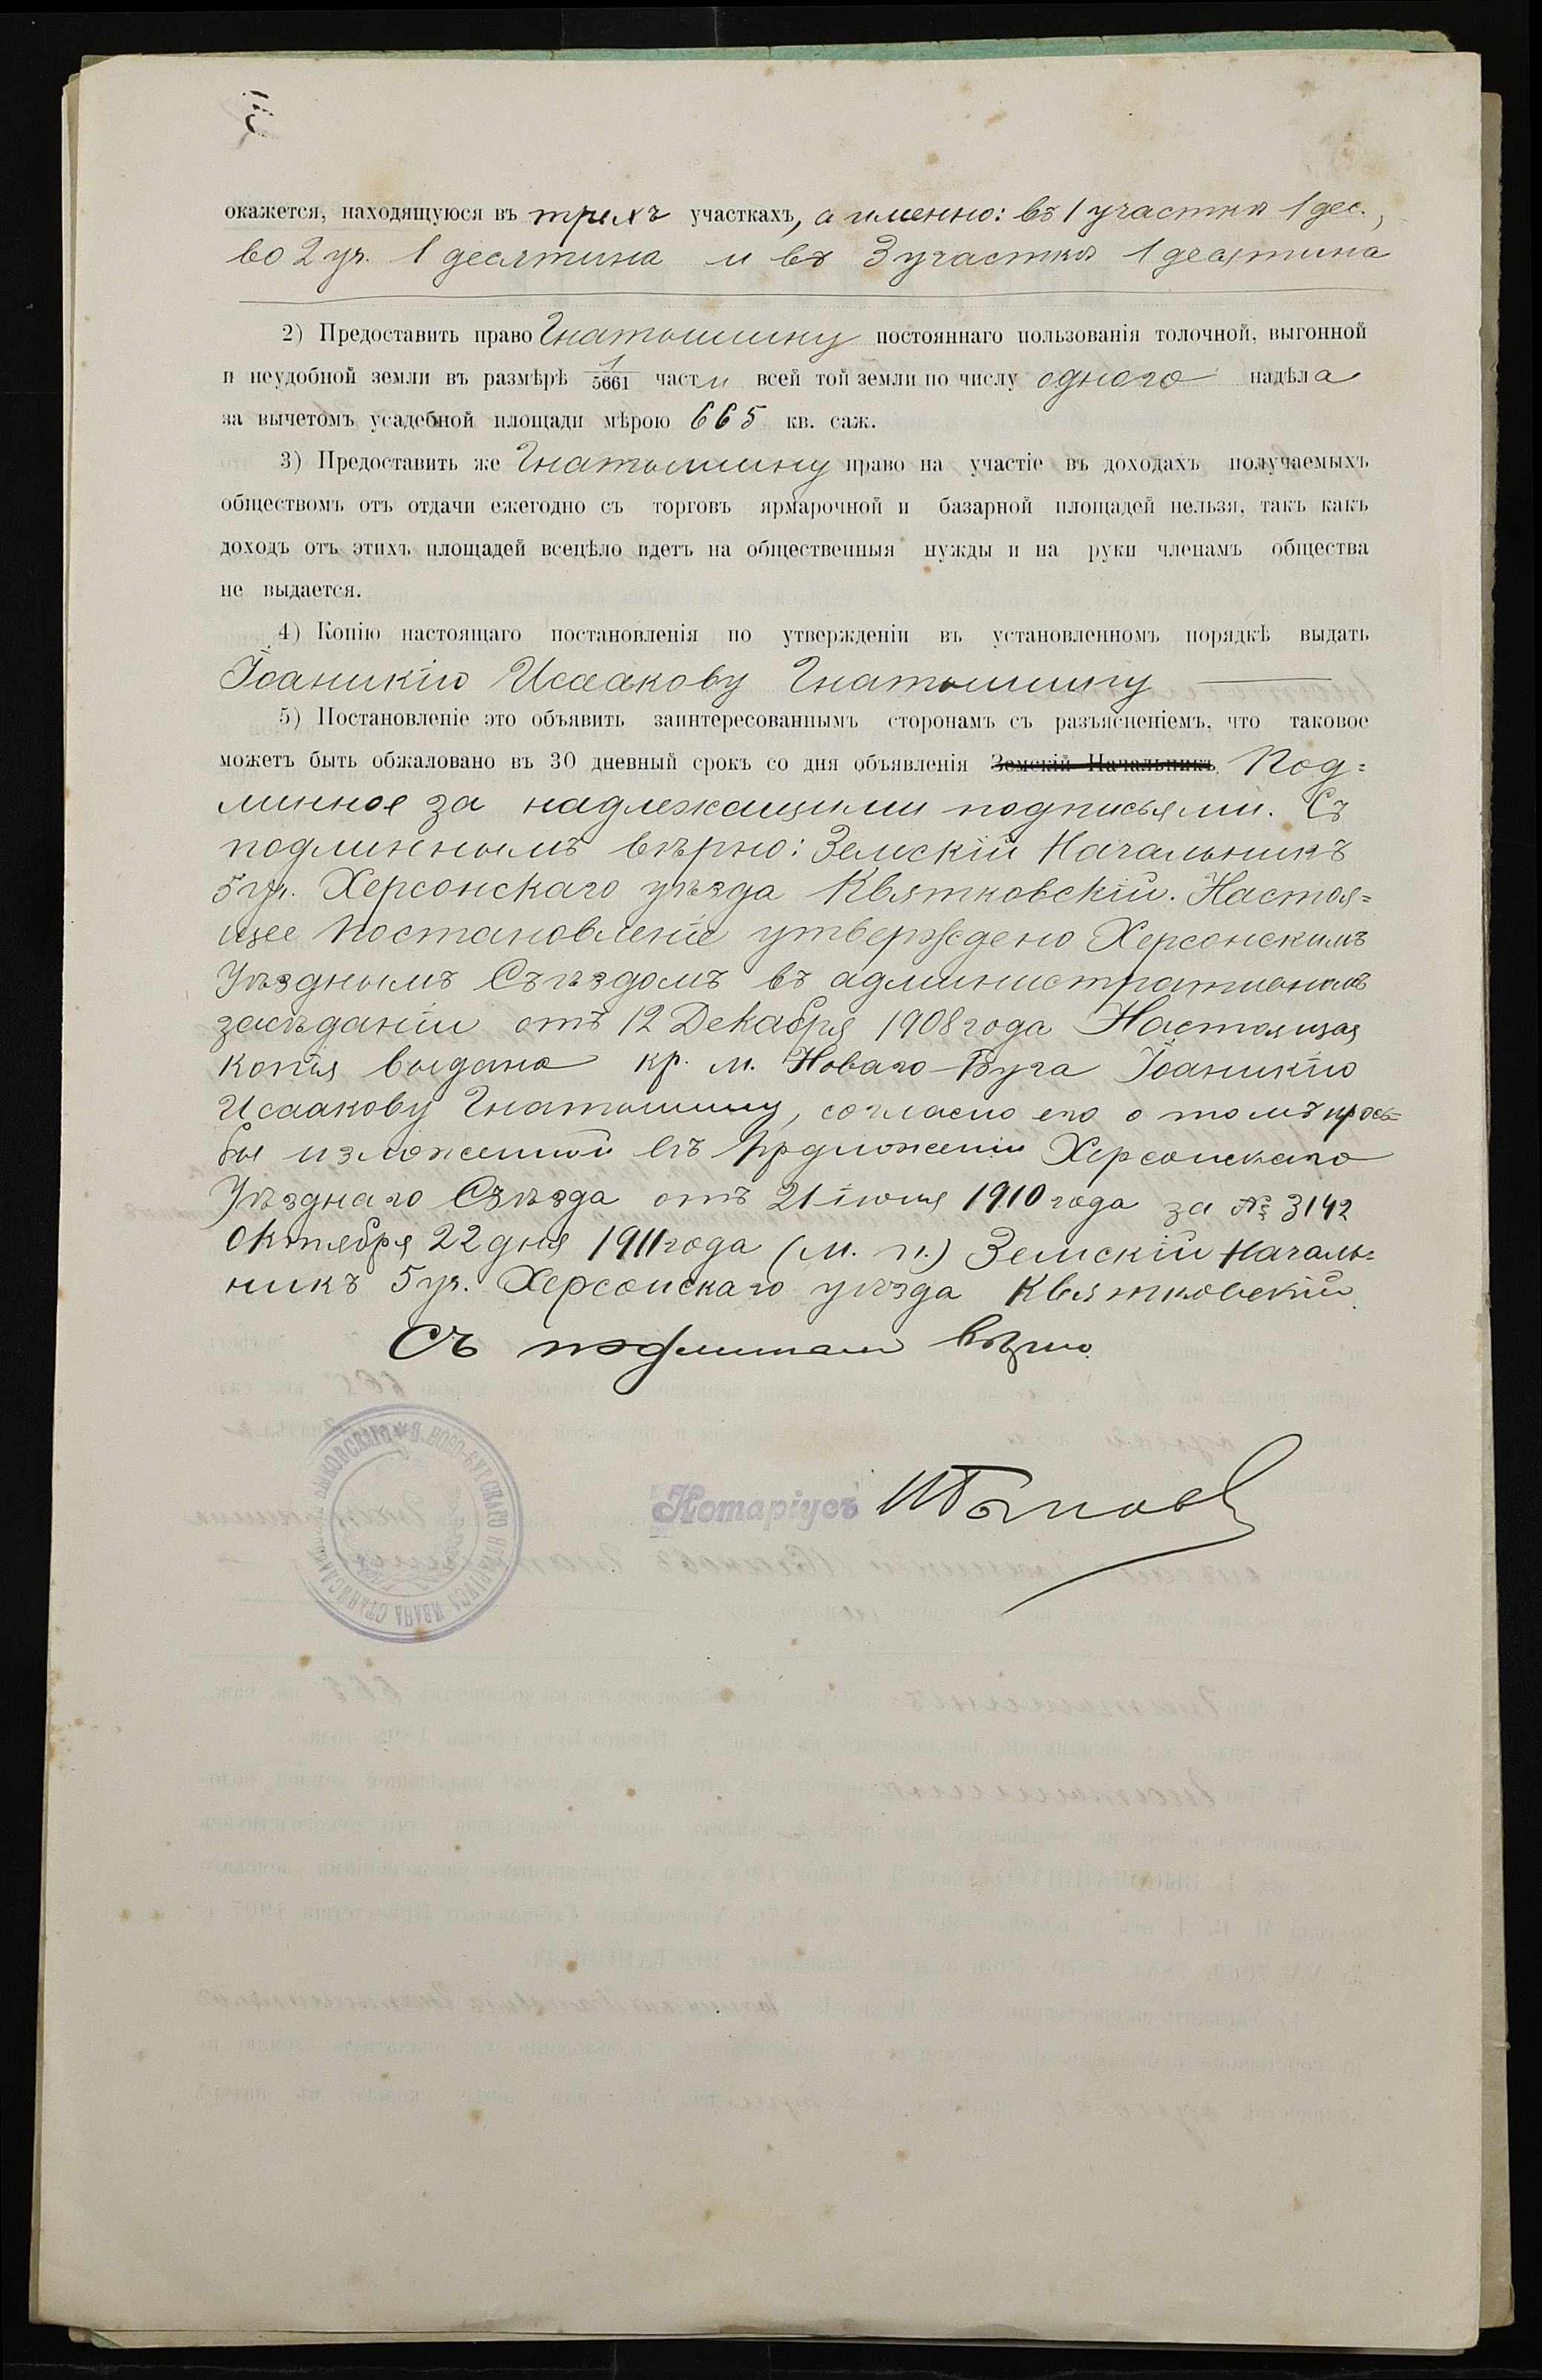 окажется, находящуюся въ трехъ участкахъ, а именно: въ 1 участкѣ 1 дес.,
во 2 уч. 1 десятина и въ 3 участкѣ 1 десятина
2) Предоставить право Гнатышину постояннаго пользованія толочной, выгонной
и неудобной земли въ размѣрѣ 1/5661 части всей той земли по числу одного надѣла
за вычетомъ усадебной площади мѣрою 665 кв. саж.
3) Предоставить же Гнатышину право на участіе въ доходахъ получаемыхъ
обществомъ отъ отдачи ежегодно съ торговъ ярмарочной и базарной площадей нельзя, такъ какъ
доходъ отъ этихъ площадей всецѣло идетъ на общественныя нужды и на руки членамъ общества
не выдается.
4) Копію настоящаго постановленія по утвержденіи въ установленномъ порядкѣ выдать
Іоаникію Исаакову Гнатышину
5) Постановленіе это объявить заинтересованнымъ сторонамъ съ разъясненіемъ, что таковое
можетъ быть обжаловано въ 30 дневный срокъ со дня объявленія Земскій Начальникъ. Под=
линное за надлежащими подписьями. Съ
подлиннымъ вѣрно: Земскій Начальникъ
5 уч. Херсонскаго уѣзда Квятковскій. Настоя=
щее постановленіе утверждено Херсонскимъ
Уѣзднымъ Съѣздомъ въ административномъ
засѣданіи отъ 12 Декабря 1908 года Настоящая
копія выдана кр. м. Новаго-Буга Іоаникію
Исаакову Гнатышину, согласно его о томъ прось=
бы изложенной въ предложеніи Херсонскаго
Уѣзднаго Съѣзда отъ 21 іюня 1910 года за № 3142
Октября 22 дня 1911 года (м. п.) Земскій Началь=
никъ 5 уч. Херсонскаго уѣзда Квятковскій.
Съ подлиннымъ вѣрно.
Нотаріусъ
НОВО-БУГСКАГО НОТАРІУСА ИВАНА